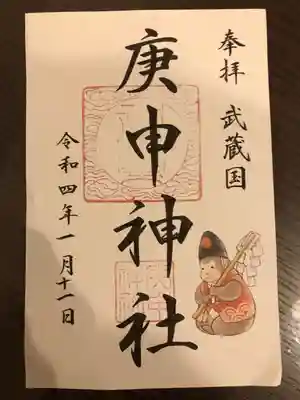 奉拝 武蔵国
庚申神社
令和四年一月十一日